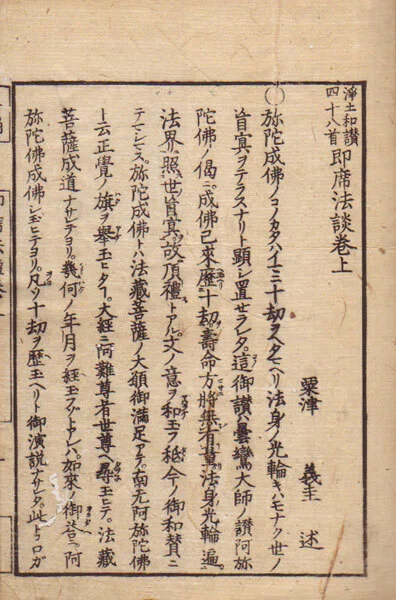 淨土和讃
四十八首
即席法談巻上
粟津 義圭 述
〇弥陀成佛ノコノカタハイマニ十劫ヲヘタマヘリ法身ノ光輪キハモナク世ノ
盲冥ヲテラスナリト顕シ置セラレタ。這御讃ハ曇鸞大師ノ讃阿弥
陀佛ノ偈ニ。成佛已來歴十劫。壽命方將無有量。法身光輪遍
法界。照世盲冥故頂禮トアル。文ノ意ヲ和玉ヲ
今ノ御和賛ニ
テマシマス。弥陀成佛トハ法藏菩薩ノ大願御満足アテ。南无阿弥陀佛
ト云正覺ノ旗ヲ舉玉ヒタ
大經ニ阿難尊者世尊ヘ尋玉ヒテ。法藏
菩薩成道ナサレテヨリ。幾何ノ年月ヲ經玉
トアレハ。如來ノ御答ニ阿
弥陀佛成佛シ玉ヒテヨリ。凡ソ十劫ヲ歴玉ヘリト御演説ナサレタ。此トロガ